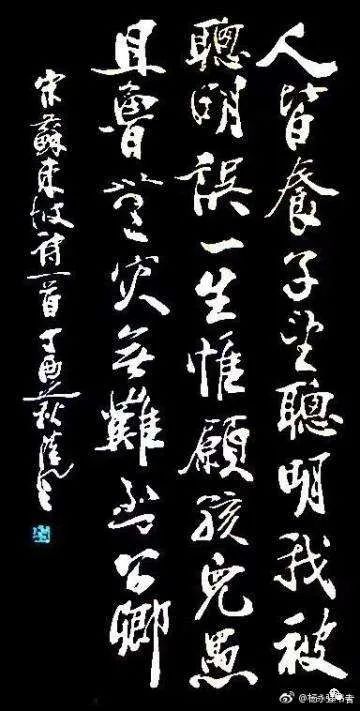 人皆養子望聰明我被
聰明誤一生惟願孩兒愚
且魯無灾無難到公卿
宋蘇東坡詩一首丁酉秋
@杨永 书者